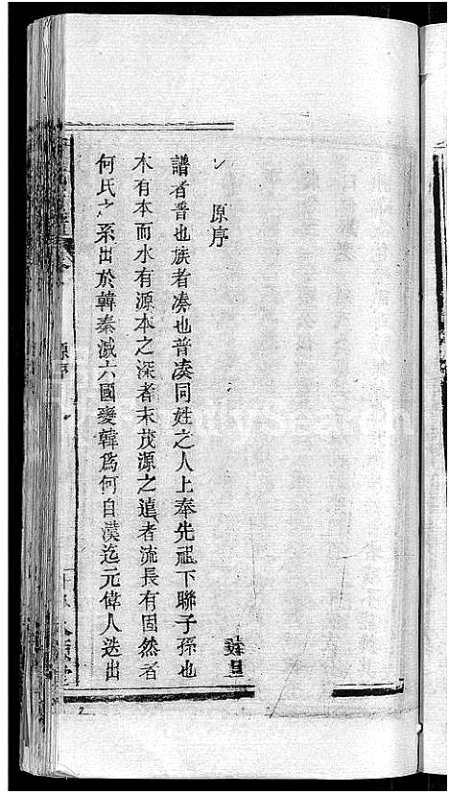 原序
譜者普也族者凑也普凑同姓之人上奉先祖下聯子孫也
木有本而水有源本之深者末茂源之遠者流長有固然者
何氏之系出於韓秦滅六國變韓爲何自漢迄元偉人迭出
原序
2